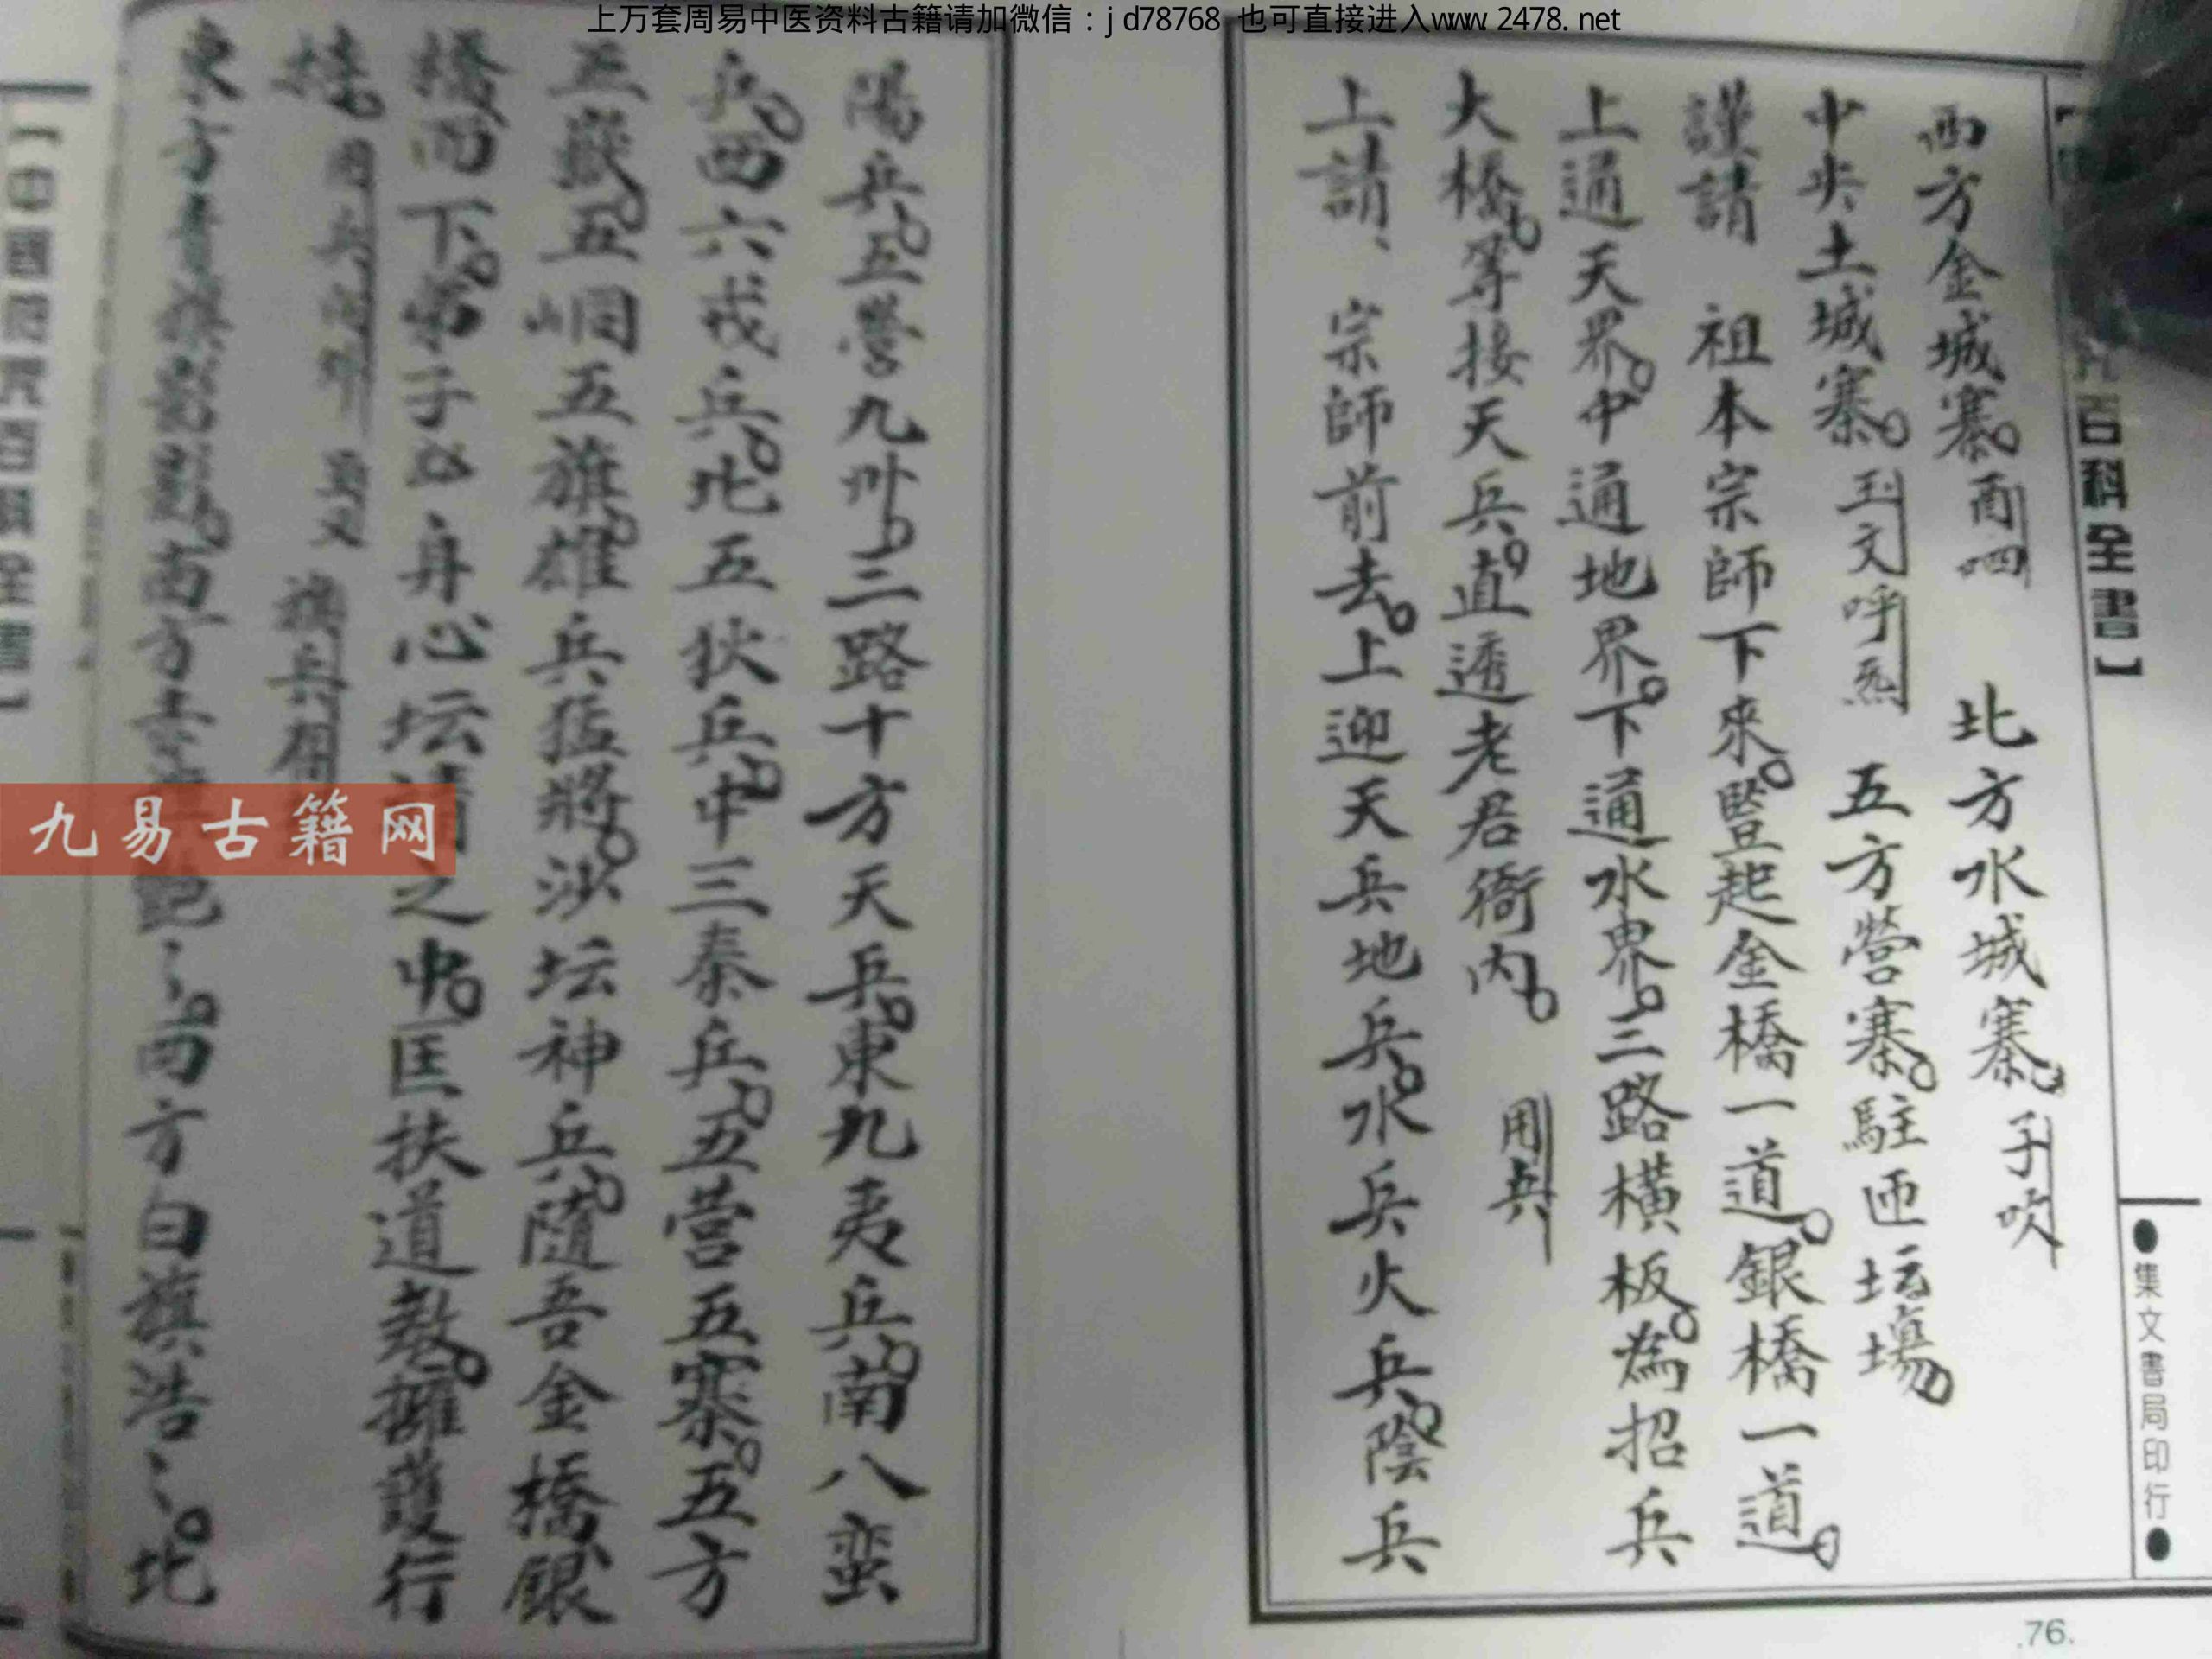 上万套周易中医资料古籍请加微信：jd78768 也可直接进入www.2478.net
百科全書】
西方金城寨 酉四 北方水城寨 子吹
中央土城寨 玉文呼炁 五方營寨駐匝坛場
謹請 祖本宗師下來豎起金橋一道銀橋一道
上通天界中通地界下通水界三路橫板為招兵
大橋等接天兵直透老君衙內 用兵
上請、宗師前去上迎天兵地兵水兵火兵陰兵
●集文書局印行●
.76.
陽兵五營九州三路十方天兵東九夷兵南八蛮
兵西六戎兵北五狄兵中三秦兵五營五寨五方
五嶽五峒五旗雄兵猛將沙坛神兵隨吾金橋銀
橋而下弟子必身心坛請之中匡扶道教擁護行
持 用兵
東方青旗 南方 西方白旗浩〻北
【中國 百科全書】
九易古籍网